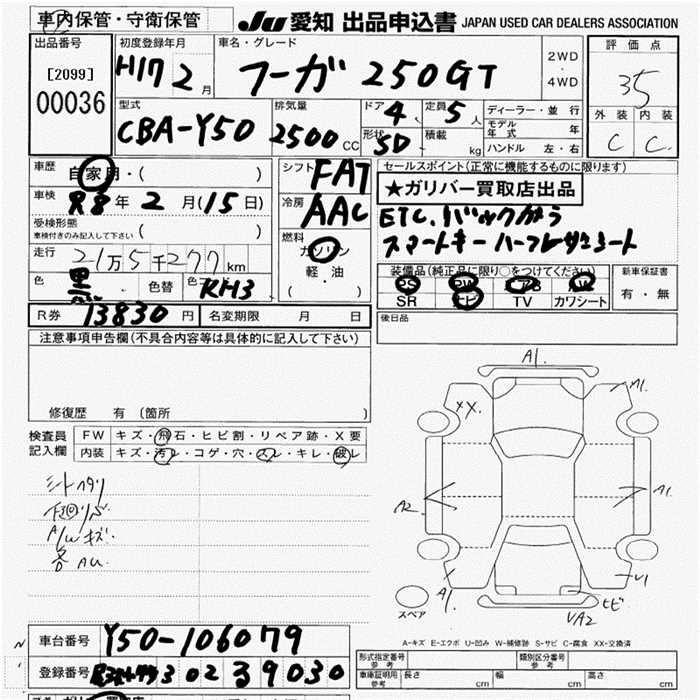 車内保管・守衛保管
JU 愛知 出品申込書 JAPAN USED CAR DEALERS ASSOCIATION
出品番号
[2099]
00036
初度登録年月
H17 2月
車名・グレード
フーガ 250GT
2WD
・
4WD
評価点
3.5
外装 内装
C C
型式
CBA-Y50
排気量
2500 CC
ドア 4 定員 5人
形状 SD 積載 kg
ディーラー・並行
モデル年式 年
ハンドル 左・右
車歴 自家用・( )
車検 R8年 2月(15日)
受検形態
車検付きのみ記入して下さい ( )
走行 21万5千277km
色 黒 色替 色 KH3
シフト FAT
冷房 AAC
燃料
ガソリン
軽・油
( ・ )
セールスポイント(正常に機能するものに限ります)
★ガリバー買取店出品
ETC. バックカメラ
スマートキー ハーフレザーシート
装備品(純正品に限り○をつけてください)
PS PW エアB AW
SR ナビ TV カワシート
新車保証書
有・無
R券 13830円 名変期限 月 日
後日品
注意事項申告欄(不具合内容等は具体的に記入して下さい)
修復歴 有 (箇所 )
検査員
記入欄
FW キズ・飛石・ヒビ割・リペア跡・X要
内装 キズ・汚レ・コゲ・穴・スレ・キレ・破レ
シートヘタリ
下回リサビ
A/W キズ
各 AU
A1.
A1.
XX.
A2
A1
A1.
U1
ヒビ
UA2
スペア
A-キズ E-エクボ U-凹み W-補修跡 S-サビ C-腐食 XX-交換済
車台番号 Y50-106079
登録番号 302 9030
形式指定番号
参考
類別区分番号
参考
車庫証明用
参考
長さ cm 幅 cm 高さ cm